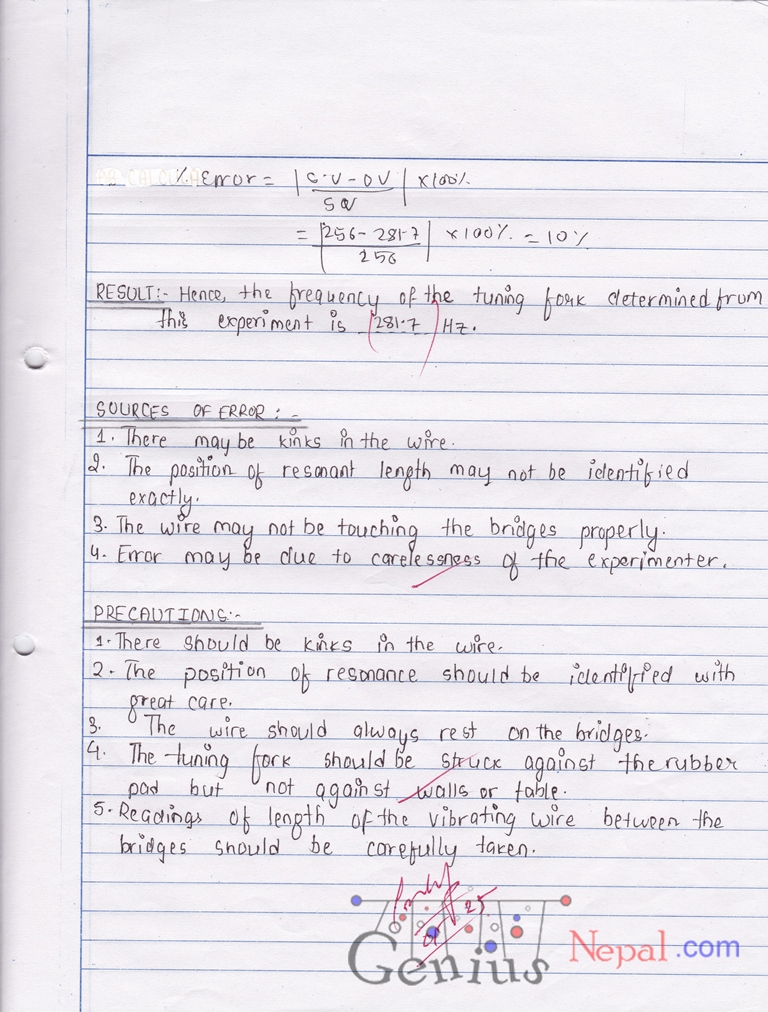 % Error = |C.V - OV / SV| ×100%
= |256 - 281.7 / 256| ×100% = 10%
RESULT:- Hence, the frequency of the tuning fork determined from
this experiment is (281.7) Hz.
SOURCES OF ERROR: -
1. There may be kinks in the wire.
2. The position of resonant length may not be identified
exactly.
3. The wire may not be touching the bridges properly.
4. Error may be due to carelessness of the experimenter.
PRECAUTIONS:-
1. There should be kinks in the wire.
2. The position of resonance should be identified with
great care.
3. The wire should always rest on the bridges.
4. The tuning fork should be struck against the rubber
pad but not against walls or table.
5. Readings of length of the vibrating wire between the
bridges should be carefully taken.
25
Genius Nepal.com